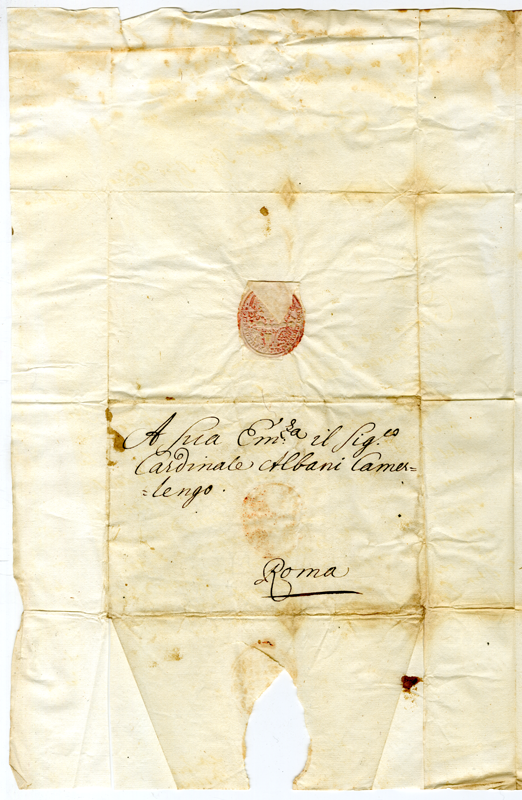 A Sua Em.za il Sig.re
Cardinale Albani Camer=
=lengo.
Roma